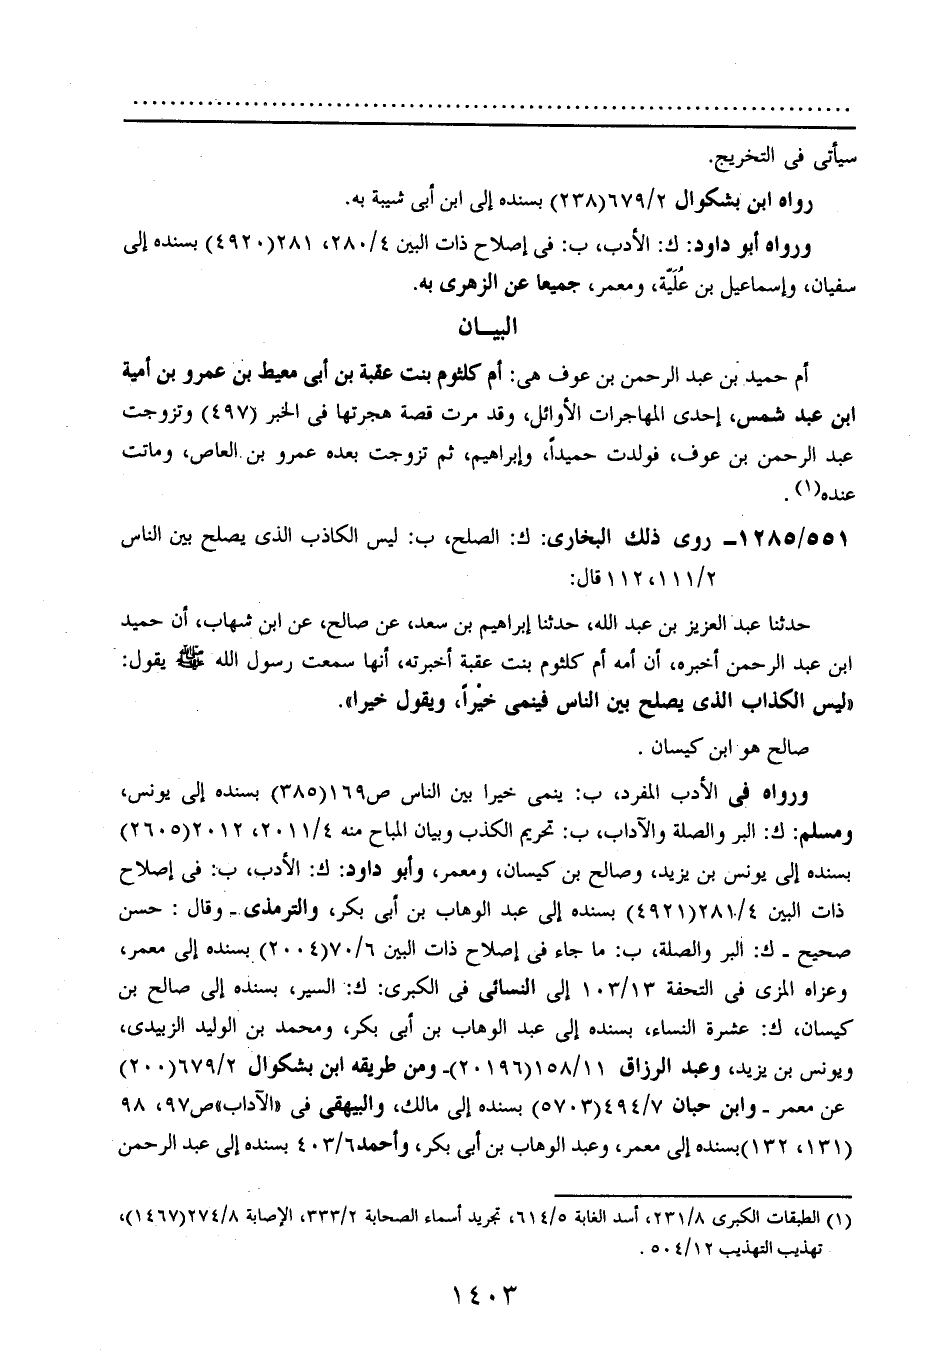 سيأتى فى التخريج.
رواه ابن بشكوال ٦٧٩/٢(٢٣٨) بسنده إلى ابن أبى شيبة به.
ورواه أبو داود: ك: الأدب، ب: فى إصلاح ذات البين ٢٨٠/٤، ٢٨١(٤٩٢٠) بسنده إلى
سفيان، وإسماعيل بن عُلَيَّة، ومعمر، جميعا عن الزهرى به.
البيـــان
أم حميد بن عبد الرحمن بن عوف هى: أم كلثوم بنت عقبة بن أبى معيط بن عمرو بن أمية
ابن عبد شمس، إحدى المهاجرات الأوائل، وقد مرت قصة هجرتها فى الخبر (٤٩٧) وتزوجت
عبد الرحمن بن عوف، فولدت حميداً، وإبراهيم، ثم تزوجت بعده عمرو بن العاص، وماتت
عنده(١).
١٢٨٥/٥٥١ـ روى ذلك البخارى: ك: الصلح، ب: ليس الكاذب الذى يصلح بين الناس
١١١/٢، ١١٢ قال:
حدثنا عبد العزيز بن عبد الله، حدثنا إبراهيم بن سعد، عن صالح، عن ابن شهاب، أن حميد
ابن عبد الرحمن أخبره، أن أمه أم كلثوم بنت عقبة أخبرته، أنها سمعت رسول الله ﷺ يقول:
«ليس الكذاب الذى يصلح بين الناس فينمى خيْراً، ويقول خيرا».
صالح هو ابن كيسان .
ورواه فى الأدب المفرد، ب: ينمى خيرا بين الناس ص١٦٩(٣٨٥) بسنده إلى يونس،
ومسلم: ك: البر والصلة والآداب، ب: تحريم الكذب وبيان المباح منه ٢٠١١/٤، ٢٠١٢(٢٦٠٥)
بسنده إلى يونس بن يزيد، وصالح بن كيسان، ومعمر، وأبو داود: ك: الأدب، ب: فى إصلاح
ذات البين ٢٨١/٤(٤٩٢١) بسنده إلى عبد الوهاب بن أبى بكر، والترمذى ـ وقال : حسن
صحيح ـ ك: البر والصلة، ب: ما جاء فى إصلاح ذات البين ٧٠/٦(٢٠٠٤) بسنده إلى معمر،
وعزاه المزى فى التحفة ١٠٣/١٣ إلى النسائى فى الكبرى: ك: السير، بسنده إلى صالح بن
كيسان، ك: عشرة النساء، بسنده إلى عبد الوهاب بن أبى بكر، ومحمد بن الوليد الزبيدى،
ويونس بن يزيد، وعبد الرزاق ١٥٨/١١(٢٠١٩٦)ـ ومن طريقه ابن بشكوال ٦٧٩/٢(٢٠٠)
عن معمر ـ وابن حبان ٤٩٤/٧(٥٧٠٣) بسنده إلى مالك، والبيهقى فى «الآداب»ص٩٧، ٩٨
(١٣١، ١٣٢)بسنده إلى معمر، وعبد الوهاب بن أبى بكر، وأحمد٤٠٣/٦ بسنده إلى عبد الرحمن
(١) الطبقات الكبرى ٢٣١/٨، أسد الغابة ٦١٤/٥، تجريد أسماء الصحابة ٣٣٣/٢، الإصابة ٢٧٤/٨(١٤٦٧)،
تهذيب التهذيب ٥٠٤/١٢ .
١٤٠٣